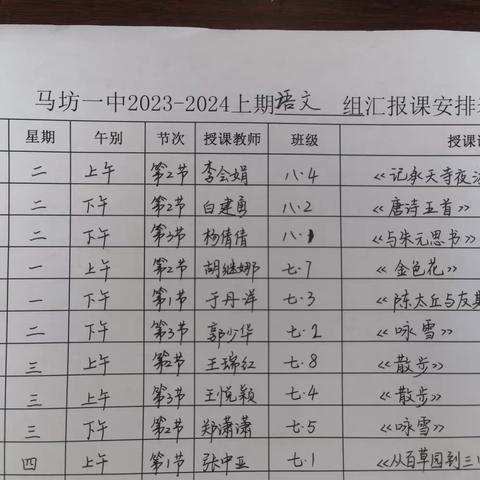 马坊一中2023-2024上期语文 组汇报课安排
星期 午别 节次 授课教师 班级 授课
二 上午 第2节 李会娟 八.4 《记承天寺夜
二 下午 第2节 白建勇 八.2 《唐诗五首》
二 下午 第3节 杨倩倩 八.1 《与朱元思书》
一 上午 第2节 胡继娜 七.7 《金色花》
一 下午 第1节 于丹洋 七.3 《陈太丘与友期
二 下午 第3节 郭少华 七.2 《咏雪》
三 上午 第2节 王瑞红 七.8 《散步》
三 上午 第3节 王悦颖 七.4 《散步》
三 下午 第2节 郑潇潇 七.5 《咏雪》
四 上午 第1节 张中亚 七.1 《从百草园到三